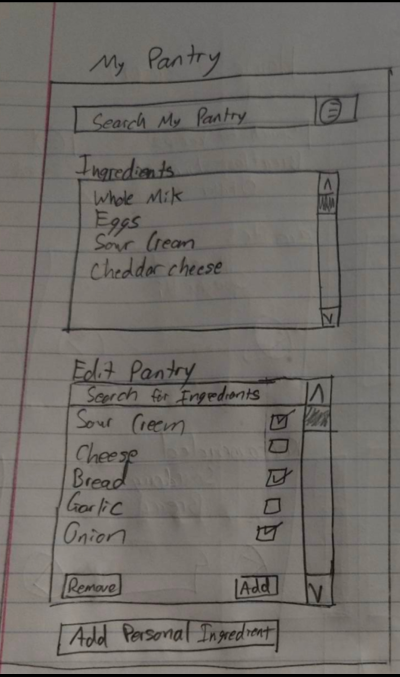 My Pantry
Search My Pantry
Ingredients
Whole Milk
Eggs
Sour Cream
Cheddar cheese
Edit Pantry
Search for Ingredients
Sour Creem
Cheese
Bread
Garlic
Onion
Remove Add
Add Personal Ingredient